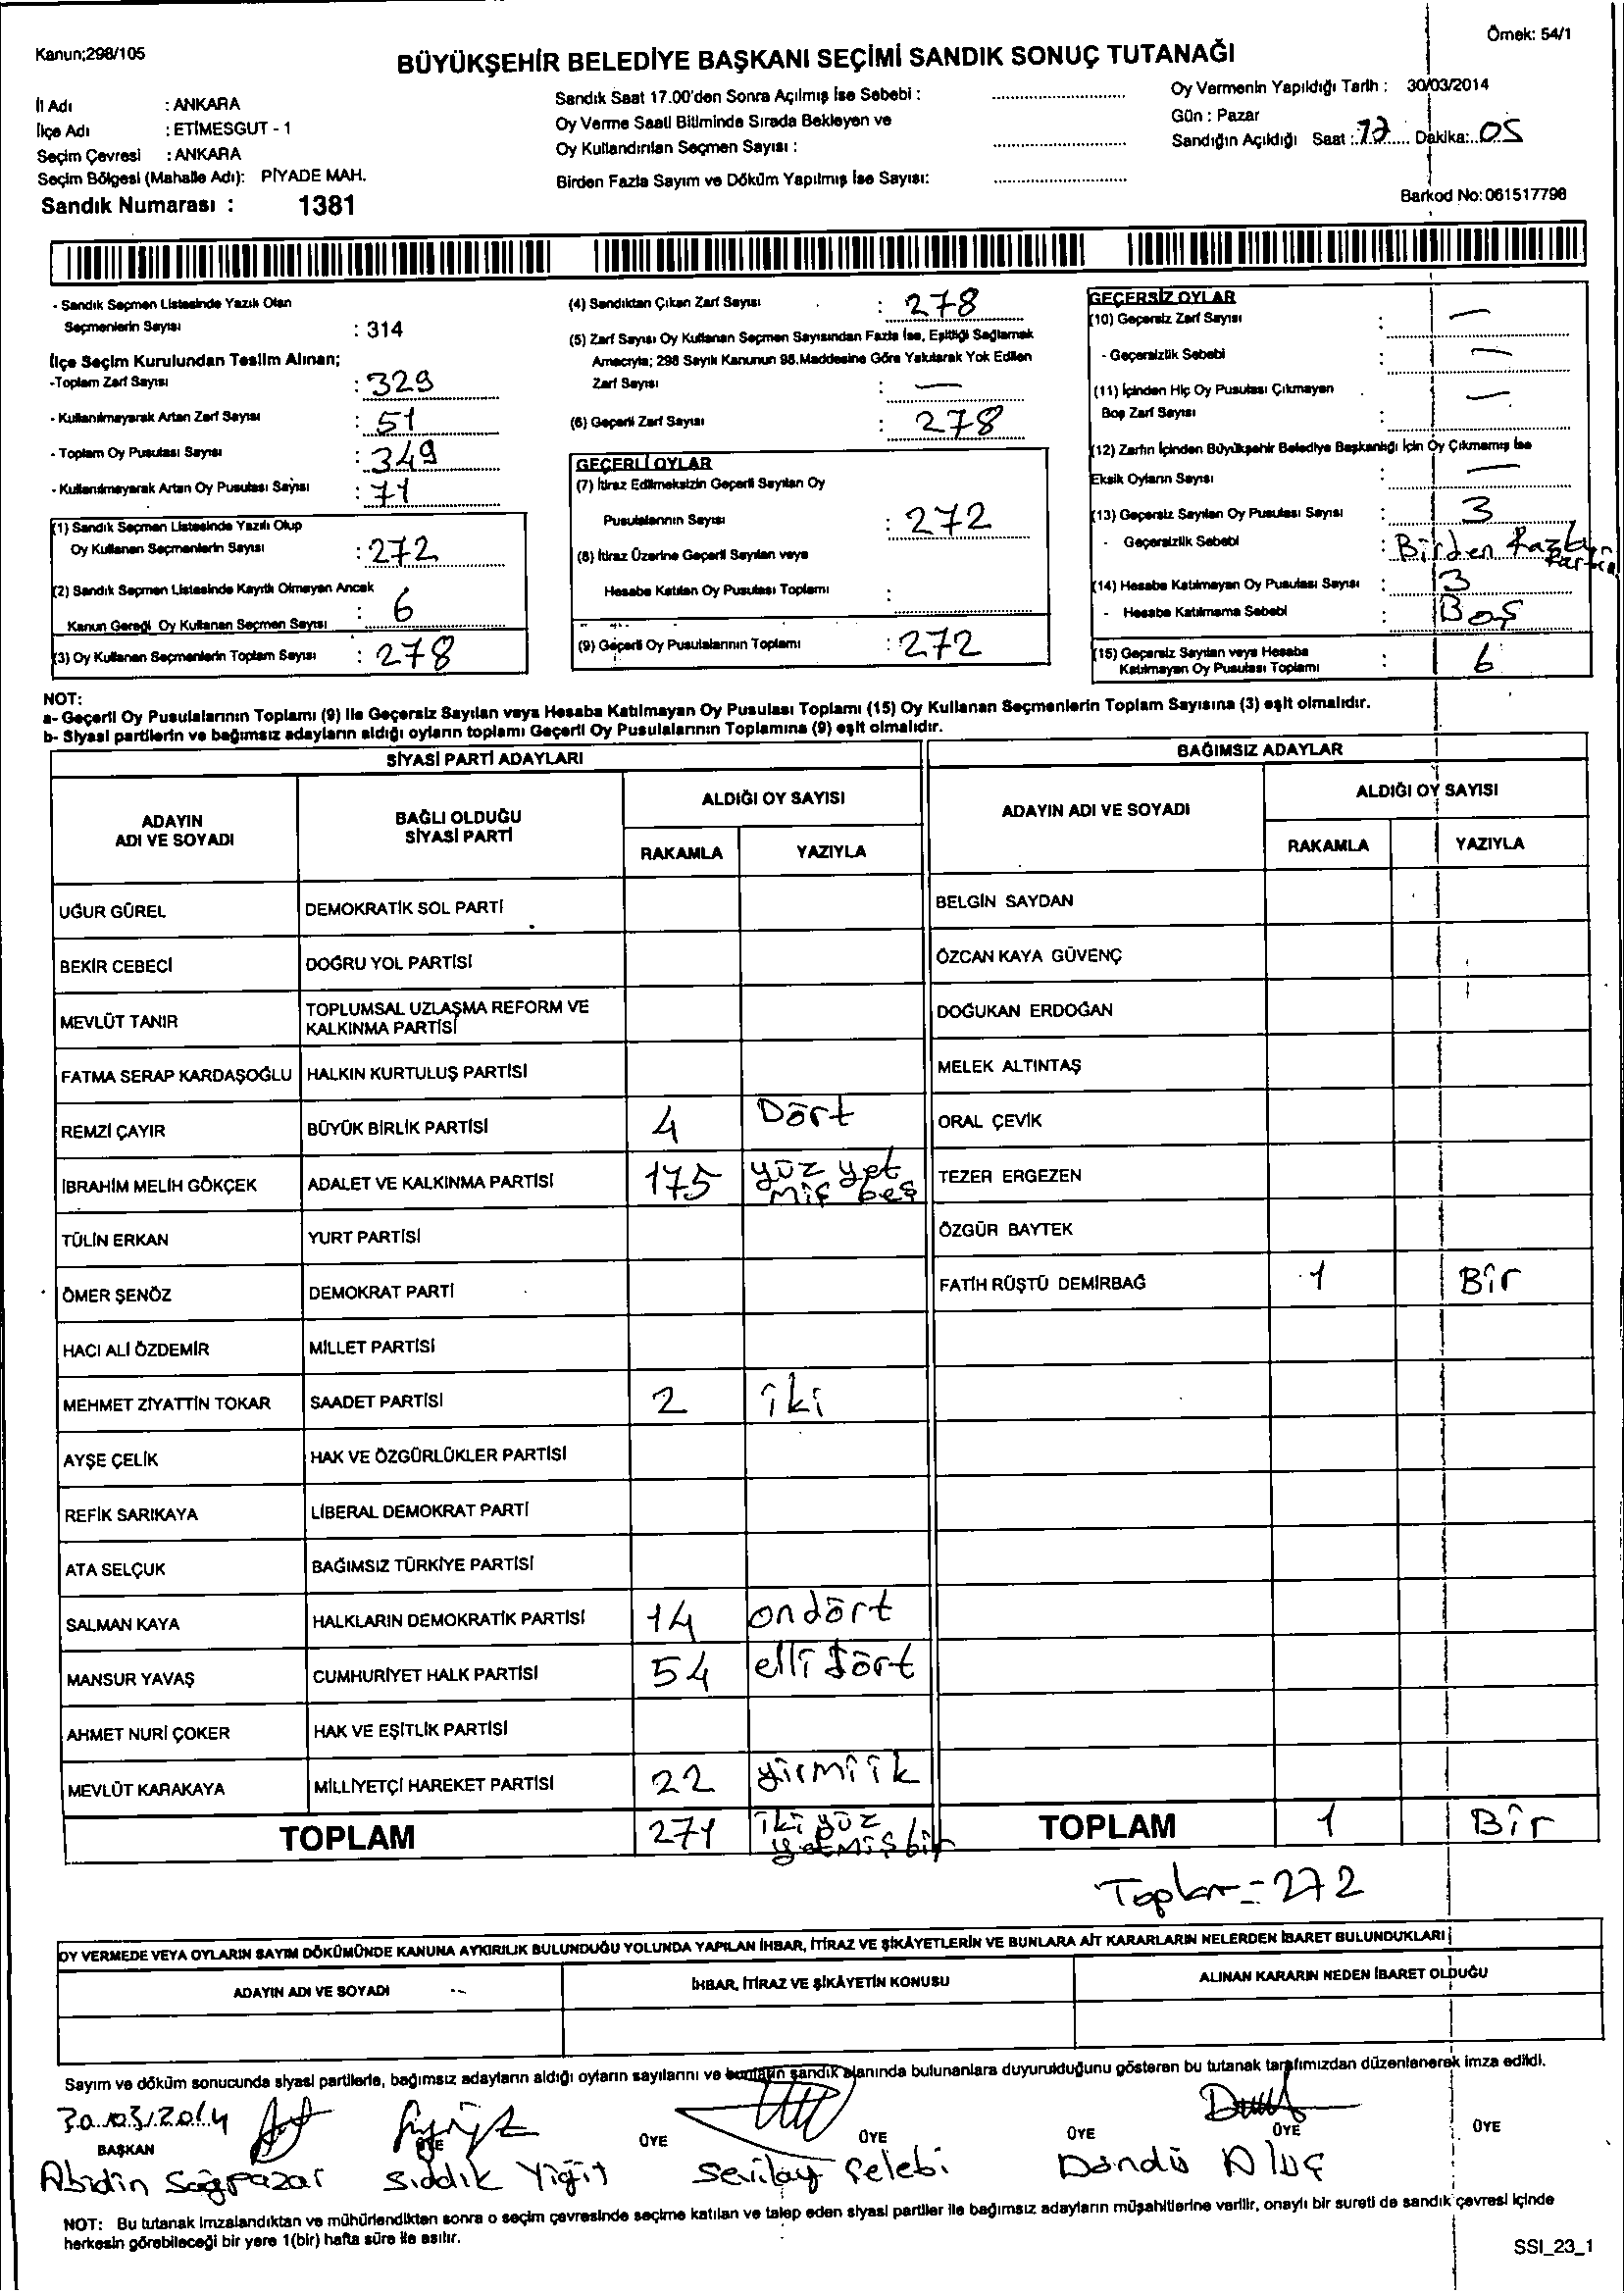 Kanun;298/105
Örnek: 54/1
BÜYÜKŞEHİR BELEDİYE BAŞKANI SEÇİMİ SANDIK SONUÇ TUTANAĞI
İl Adı : ANKARA
İlçe Adı : ETİMESGUT - 1
Seçim Çevresi : ANKARA
Seçim Bölgesi (Mahalle Adı): PİYADE MAH.
Sandık Numarası : 1381
Sandık Saat 17.00'den Sonra Açılmış İse Sebebi :
Oy Verme Saati Bitiminde Sırada Bekleyen ve
Oy Kullandırılan Seçmen Sayısı :
Birden Fazla Sayım ve Döküm Yapılmış İse Sayısı:
Oy Vermenin Yapıldığı Tarih : 30/03/2014
Gün : Pazar
Sandığın Açıldığı Saat : 17 Dakika: 05
Barkod No: 061517798
- Sandık Seçmen Listesinde Yazılı Olan
Seçmenlerin Sayısı : 314
İlçe Seçim Kurulundan Teslim Alınan;
-Toplam Zarf Sayısı : 329
- Kullanılmayarak Artan Zarf Sayısı : 51
- Toplam Oy Pusulası Sayısı : 349
- Kullanılmayarak Artan Oy Pusulası Sayısı : 71
(1) Sandık Seçmen Listesinde Yazılı Olup
Oy Kullanan Seçmenlerin Sayısı : 272
(2) Sandık Seçmen Listesinde Kayıtlı Olmayan Ancak
Kanun Gereği Oy Kullanan Seçmen Sayısı : 6
(3) Oy Kullanan Seçmenlerin Toplam Sayısı : 278
(4) Sandıktan Çıkan Zarf Sayısı : 278
(5) Zarf Sayısı Oy Kullanan Seçmen Sayısından Fazla İse, Eşitliği Sağlamak
Amacıyla; 298 Sayılı Kanunun 98.Maddesine Göre Yakılarak Yok Edilen
Zarf Sayısı : —
(6) Geçerli Zarf Sayısı : 278
GEÇERLİ OYLAR
(7) İtiraz Edilmeksizin Geçerli Sayılan Oy
Pusulalarının Sayısı : 272
(8) İtiraz Üzerine Geçerli Sayılan veya
Hesaba Katılan Oy Pusulası Toplamı :
(9) Geçerli Oy Pusulalarının Toplamı : 272
GEÇERSİZ OYLAR
(10) Geçersiz Zarf Sayısı : —
- Geçersizlik Sebebi : —
(11) İçinden Hiç Oy Pusulası Çıkmayan
Boş Zarf Sayısı : —
(12) Zarfın İçinden Büyükşehir Belediye Başkanlığı İçin Oy Çıkmamış İse
Eksik Oyların Sayısı : —
(13) Geçersiz Sayılan Oy Pusulası Sayısı : 3
- Geçersizlik Sebebi : Birden Fazla
(14) Hesaba Katılmayan Oy Pusulası Sayısı : 3
- Hesaba Katılmama Sebebi : Boş
(15) Geçersiz Sayılan veya Hesaba
Katılmayan Oy Pusulası Toplamı : 6
NOT:
a- Geçerli Oy Pusulalarının Toplamı (9) ile Geçersiz Sayılan veya Hesaba Katılmayan Oy Pusulası Toplamı (15) Oy Kullanan Seçmenlerin Toplam Sayısına (3) eşit olmalıdır.
b- Siyasi partilerin ve bağımsız adayların aldığı oyların toplamı Geçerli Oy Pusulalarının Toplamına (9) eşit olmalıdır.
SİYASİ PARTİ ADAYLARI
BAĞIMSIZ ADAYLAR
ADAYIN
ADI VE SOYADI
BAĞLI OLDUĞU
SİYASİ PARTİ
ALDIĞI OY SAYISI
RAKAMLA YAZIYLA
ADAYIN ADI VE SOYADI
ALDIĞI OY SAYISI
RAKAMLA YAZIYLA
UĞUR GÜREL DEMOKRATİK SOL PARTİ BELGİN SAYDAN
BEKİR CEBECİ DOĞRU YOL PARTİSİ ÖZCAN KAYA GÜVENÇ
MEVLÜT TANIR TOPLUMSAL UZLAŞMA REFORM VE
KALKINMA PARTİSİ DOĞUKAN ERDOĞAN
FATMA SERAP KARDAŞOĞLU HALKIN KURTULUŞ PARTİSİ MELEK ALTINTAŞ
REMZİ ÇAYIR BÜYÜK BİRLİK PARTİSİ 4 Dört ORAL ÇEVİK
İBRAHİM MELİH GÖKÇEK ADALET VE KALKINMA PARTİSİ 175 yüz yet
miş beş TEZER ERGEZEN
TÜLİN ERKAN YURT PARTİSİ ÖZGÜR BAYTEK
ÖMER ŞENÖZ DEMOKRAT PARTİ FATİH RÜŞTÜ DEMİRBAĞ 1 Bir
HACI ALİ ÖZDEMİR MİLLET PARTİSİ
MEHMET ZİYATTİN TOKAR SAADET PARTİSİ 2 iki
AYŞE ÇELİK HAK VE ÖZGÜRLÜKLER PARTİSİ
REFİK SARIKAYA LİBERAL DEMOKRAT PARTİ
ATA SELÇUK BAĞIMSIZ TÜRKİYE PARTİSİ
SALMAN KAYA HALKLARIN DEMOKRATİK PARTİSİ 14 ondört
MANSUR YAVAŞ CUMHURİYET HALK PARTİSİ 54 elli dört
AHMET NURİ ÇOKER HAK VE EŞİTLİK PARTİSİ
MEVLÜT KARAKAYA MİLLİYETÇİ HAREKET PARTİSİ 22 yirmi ik
TOPLAM 271 iki yüz
yetmiş bir TOPLAM 1 Bir
Toplam = 272
OY VERMEDE VEYA OYLARIN SAYIM DÖKÜMÜNDE KANUNA AYKIRILIK BULUNDUĞU YOLUNDA YAPILAN İHBAR, İTİRAZ VE ŞİKÂYETLERİN VE BUNLARA AİT KARARLARIN NELERDEN İBARET BULUNDUKLARI
ADAYIN ADI VE SOYADI İHBAR, İTİRAZ VE ŞİKÂYETİN KONUSU ALINAN KARARIN NEDEN İBARET OLDUĞU
Sayım ve döküm sonucunda siyasi partilerle, bağımsız adayların aldığı oyların sayılarını ve bunların sandık alanında bulunanlara duyurulduğunu gösteren bu tutanak tarafımızdan düzenlenerek imza edildi.
30.03.2014
BAŞKAN ÜYE ÜYE ÜYE ÜYE ÜYE ÜYE
Abidin Sağpazar Sıddık Yiğit Sevilay Çelebi Döndü Aluç
NOT: Bu tutanak imzalandıktan ve mühürlendikten sonra o seçim çevresinde seçime katılan ve talep eden siyasi partiler ile bağımsız adayların müşahitlerine verilir, onaylı bir sureti de sandık çevresi içinde
herkesin görebileceği bir yere 1(bir) hafta süre ile asılır.
SSI_23_1